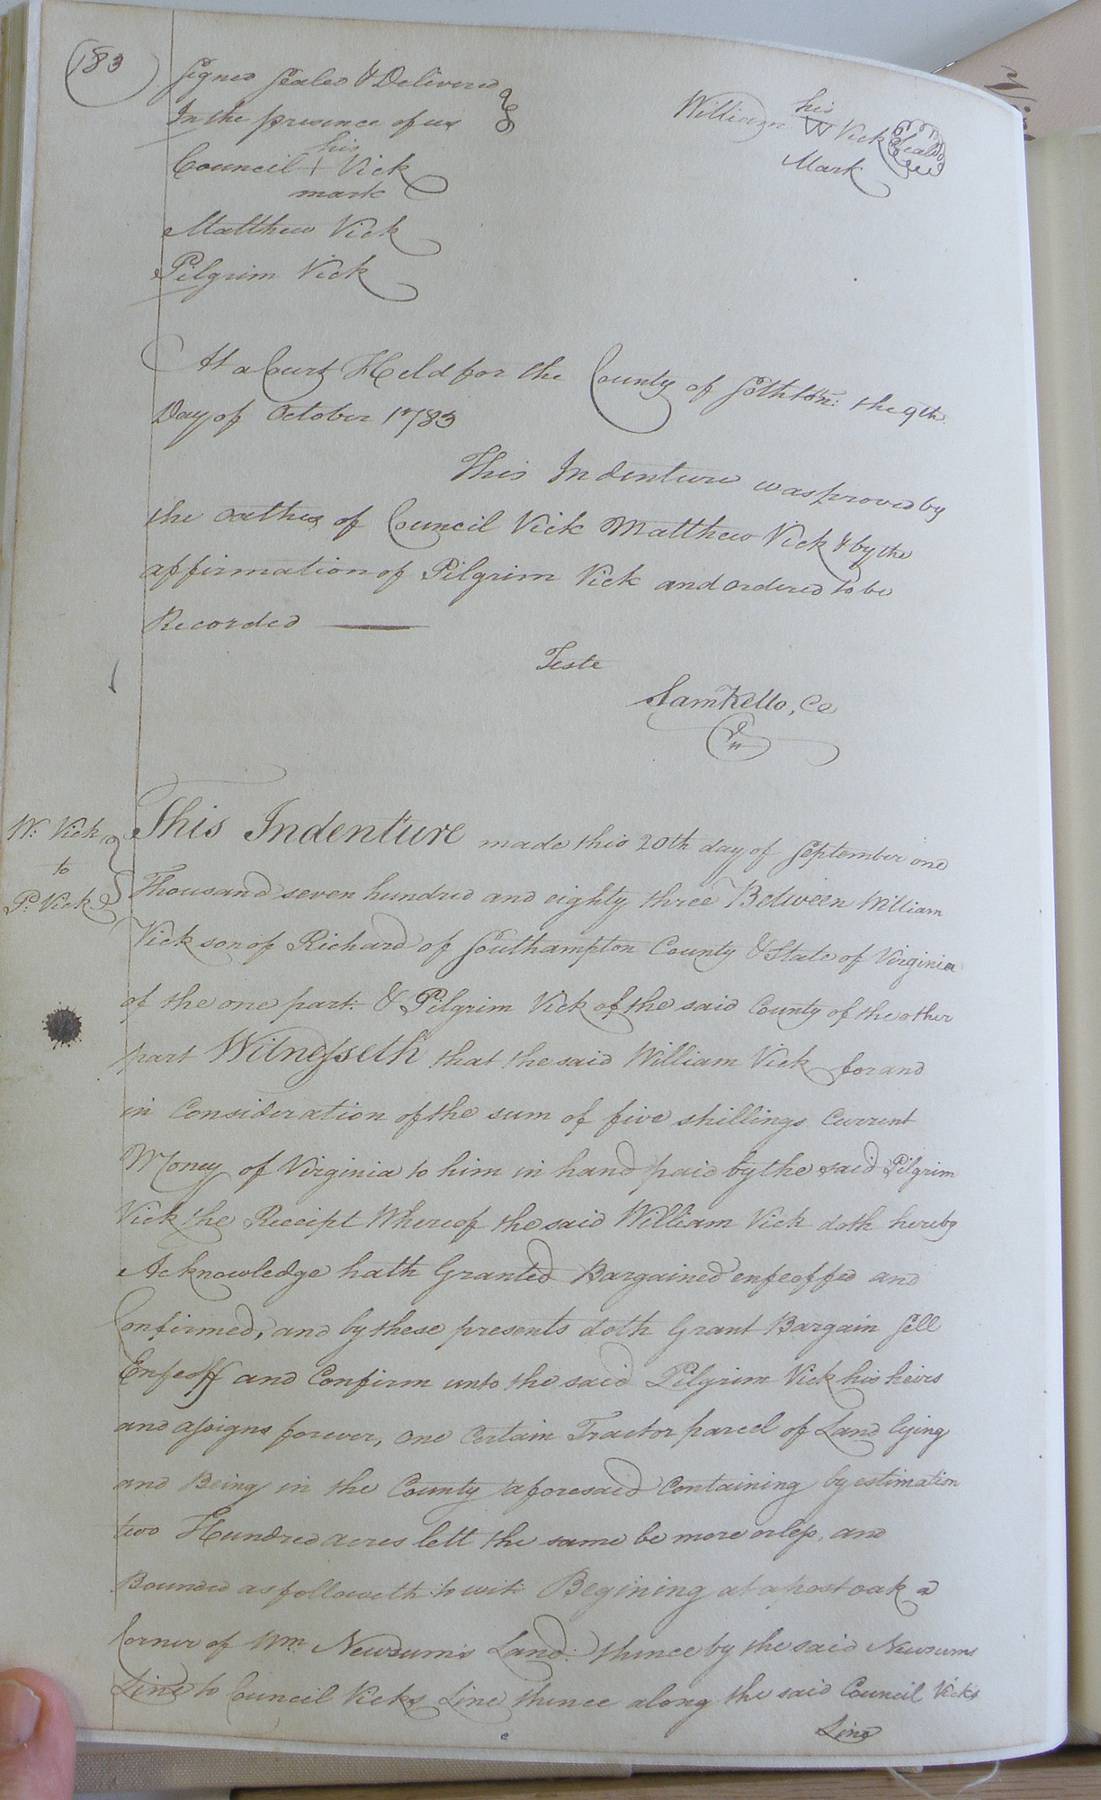 183
Signed Sealed & Delivered
In the presence of us
Council his + Vick
mark
Matthew Vick
Pilgrim Vick
his
William W Vick Seal
Mark
At a Court Held for the County of Sothton: the 9th
Day of October 1783
This Indenture was proved by
the oathes of Council Vick Matthew Vick & by the
affirmation of Pilgrim Vick and ordered to be
Recorded
Teste
Sam Kello, CC
W: Vick
to
P: Vick
This Indenture made this 20th day of September one
Thousand seven hundred and eighty three Between William
Vick son of Richard of Southampton County & State of Virginia
of the one part: & Pilgrim Vick of the said County of the other
part Witnesseth that the said William Vick for and
in Consideration of the sum of five shillings Current
Money of Virginia to him in hand paid by the said Pilgrim
Vick the Receipt Whereof the said William Vick doth hereby
Acknowledge hath Granted Bargained enfeoffed and
Confirmed, and by these presents doth Grant Bargain Sell
Enfeoff and Confirm unto the said Pilgrim Vick his heirs
and assigns forever, one Certain Tract or parcel of Land lying
and Being in the County aforesaid Containing by estimation
two Hundred acres lett the same be more or less, and
Bounded as followeth to wit: Begining at a post oak a
Corner of Wm Newsum's Land: thence by the said Newsums
Line to Council Vicks Line thence along the said Council Vicks
Line